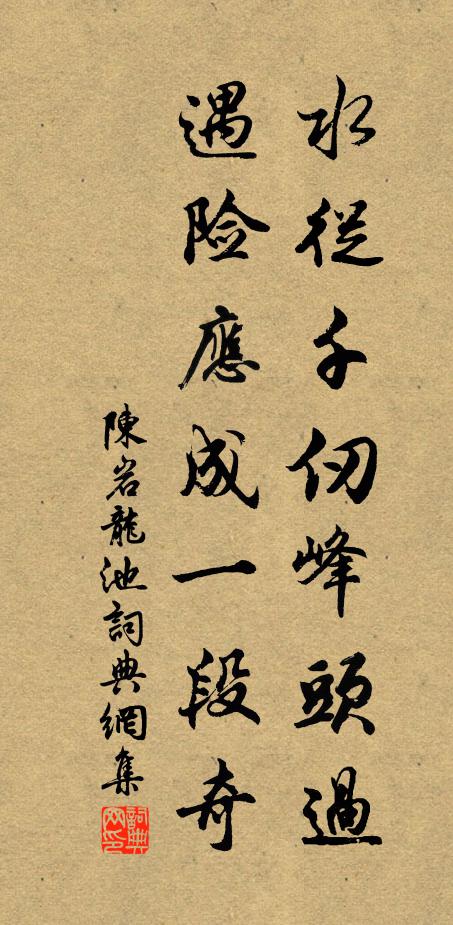 水從千仞峰頭過
遇险應成一段奇
陳岩龍池詞典網集
詞典网印